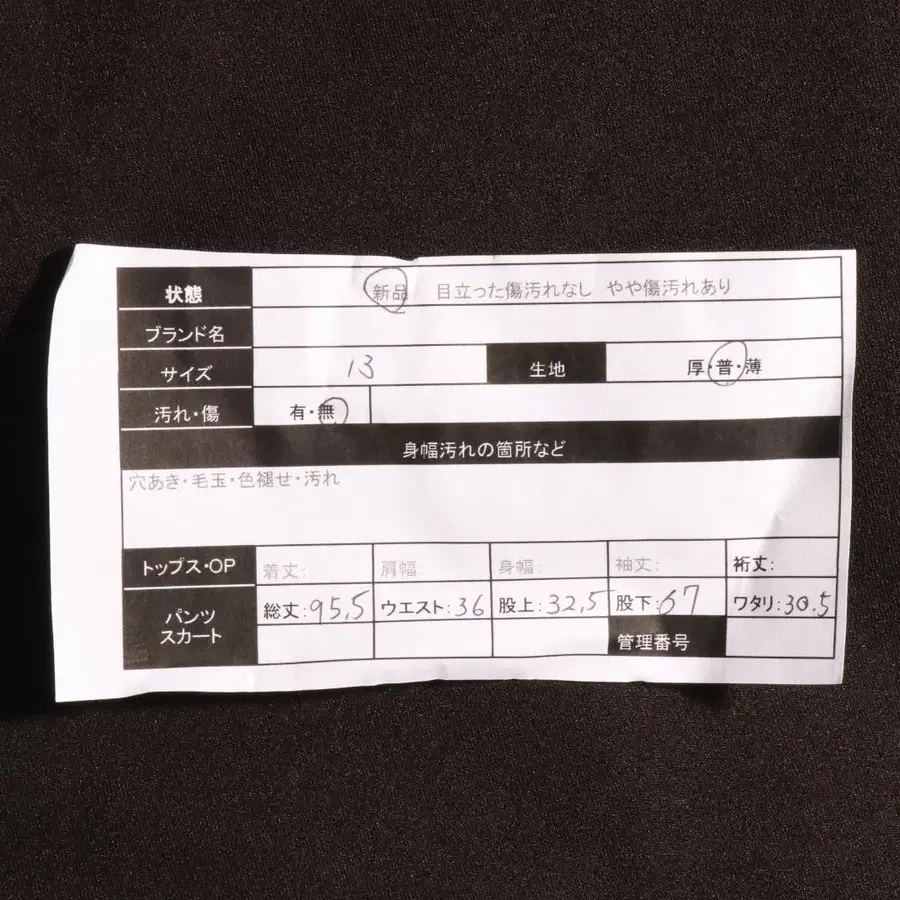 状態 新品 目立った傷汚れなし やや傷汚れあり
ブランド名
サイズ 13 生地 厚・普・薄
汚れ・傷 有・無
身幅汚れの箇所など
穴あき・毛玉・色褪せ・汚れ
トップス・OP 着丈: 肩幅: 身幅: 袖丈: 裄丈:
パンツ 総丈:95,5 ウエスト:36 股上:32,5 股下:67 ワタリ:30.5
スカート 管理番号